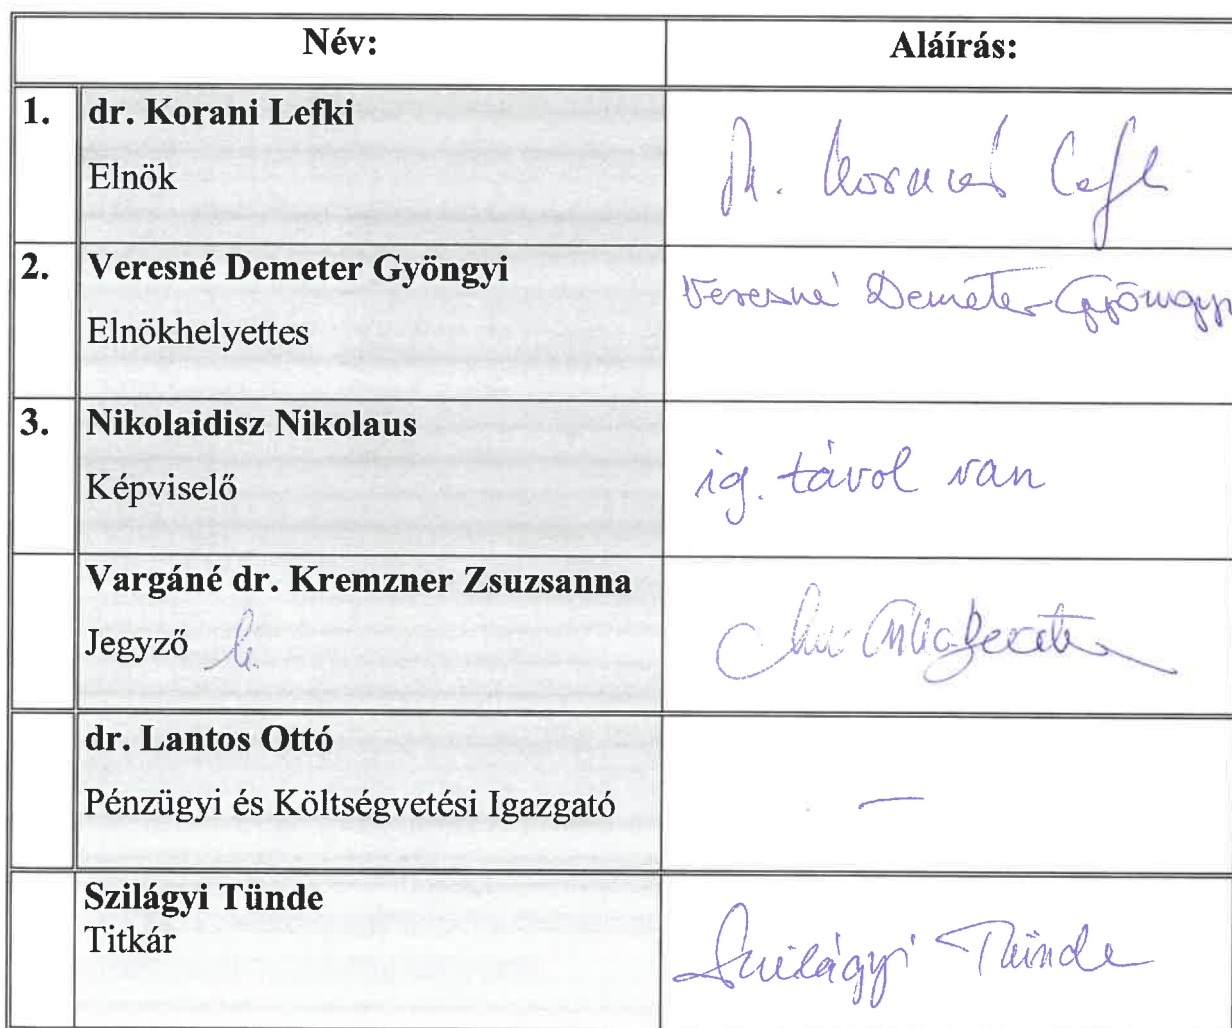 Név: Aláírás:
1. dr. Korani Lefki
Elnök
Dr. Korani Lefki
2. Veresné Demeter Gyöngyi
Elnökhelyettes
Veresné Demeter Gyöngyi
3. Nikolaidisz Nikolaus
Képviselő
ig. távol van
Vargáné dr. Kremzner Zsuzsanna
Jegyző
dr. Lantos Ottó
Pénzügyi és Költségvetési Igazgató
—
Szilágyi Tünde
Titkár
Szilágyi Tünde